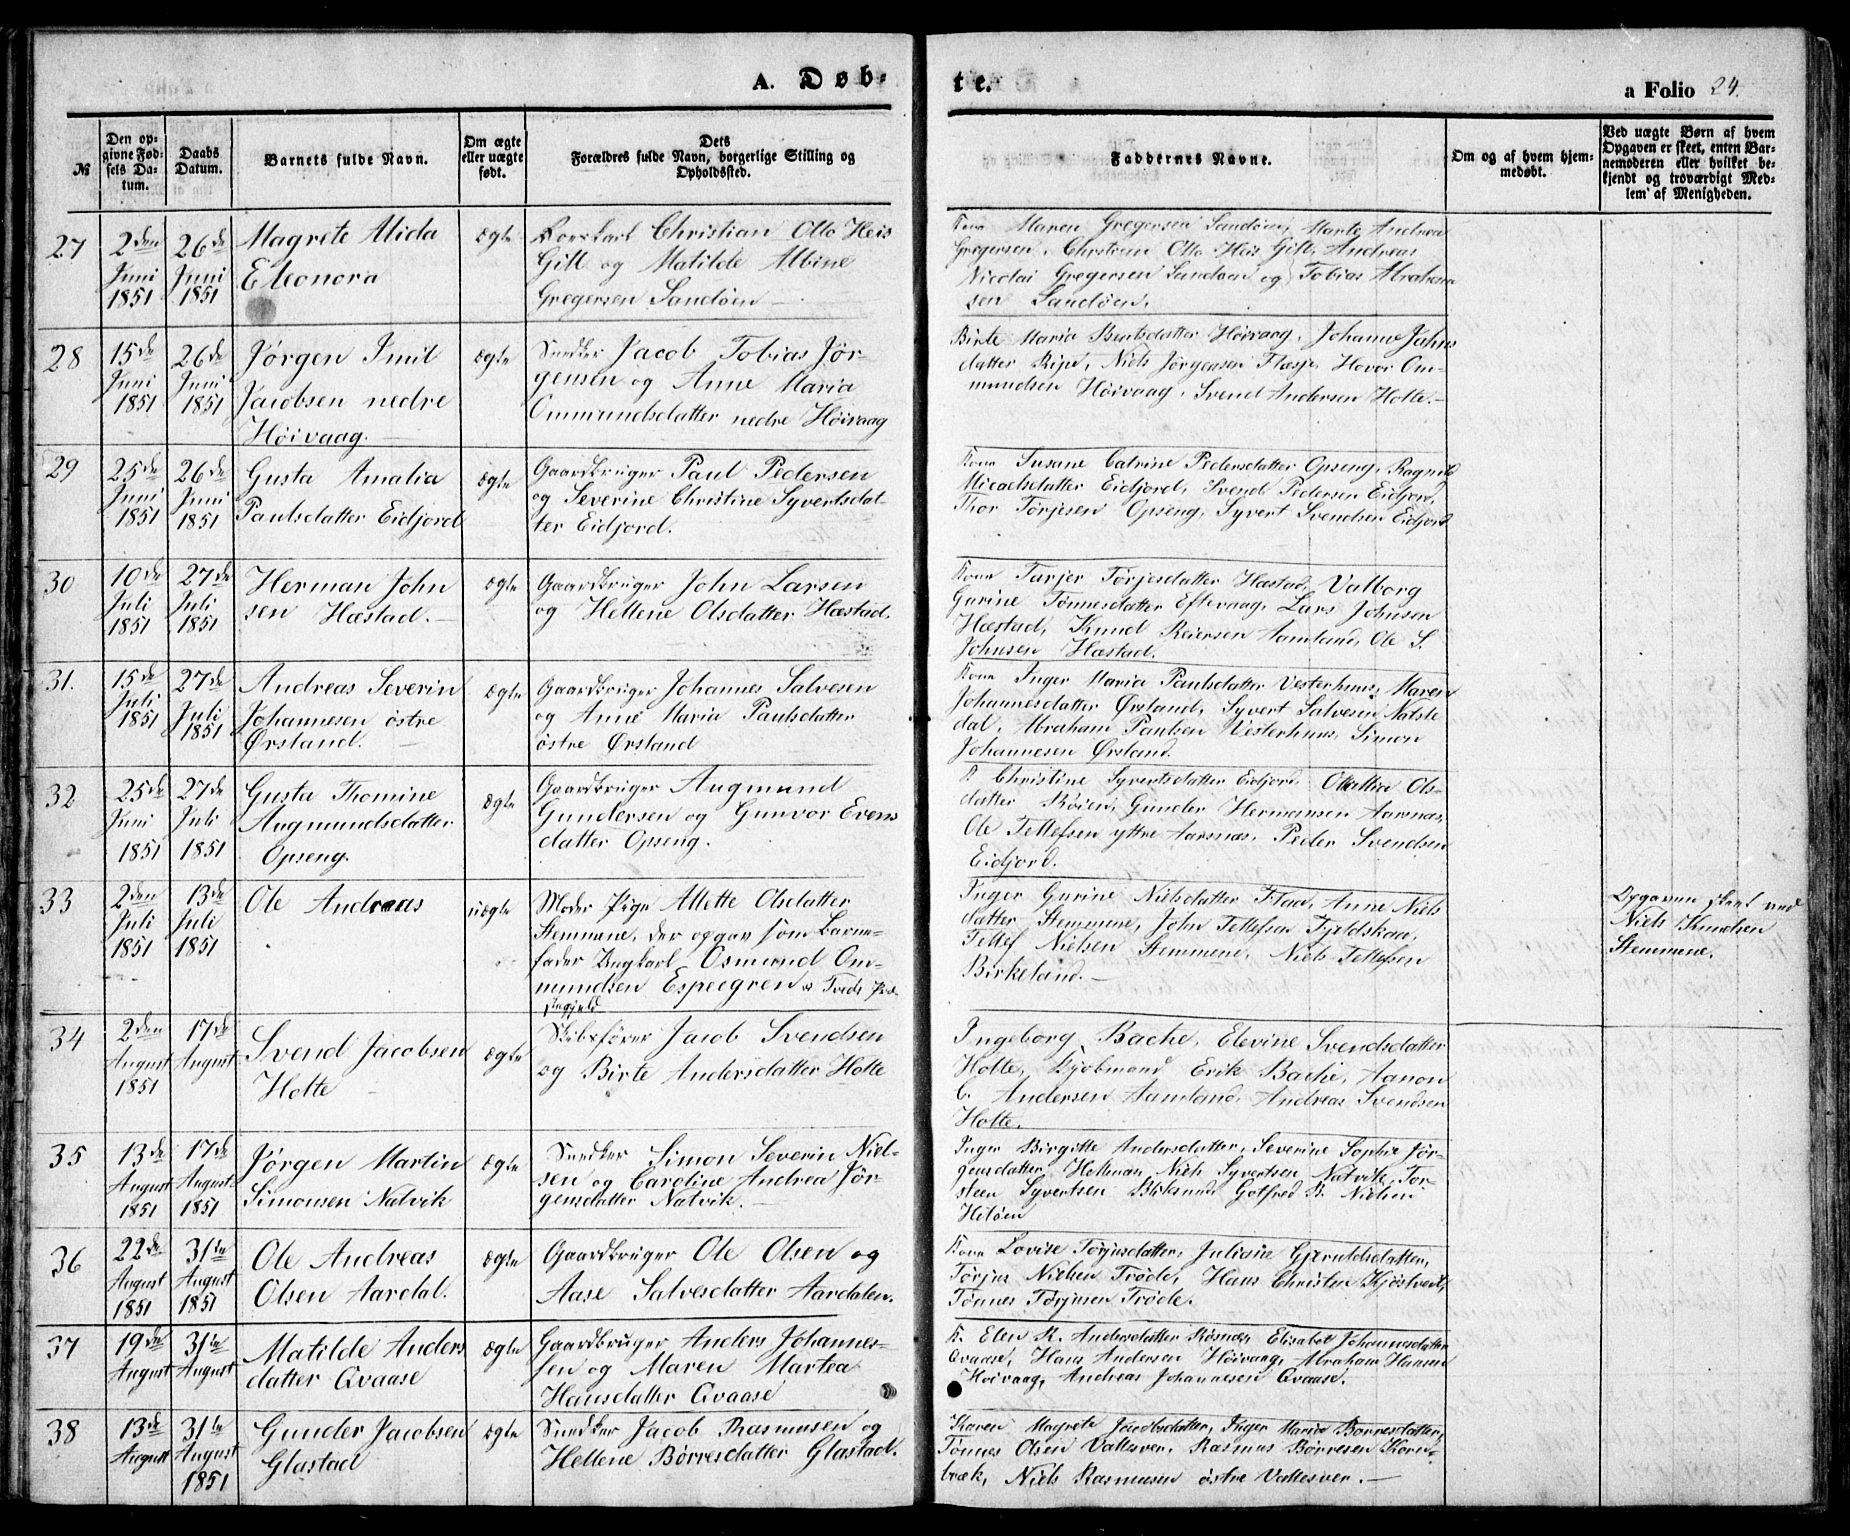 A. Døb-
te.
a Folio 24.
№
Den op-
givne Fød-
sels Da-
tum.
Daabs
Datum.
Barnets fulde Navn.
Om ægte
eller uægte
født.
Dets
Forældres fulde Navn, borgerlige Stilling og
Opholdssted.
Faddernes Navne.
Om og af hvem hjem-
medøbt.
Ved uægte Børn af hvem
Opgaven er skeet, enten Bar-
nemoderen eller hvilket be-
kjendt og troværdigt Med-
lem af Menigheden.
27
2den
Juni
1851
26de
Juni
1851
Magrete Alida
Eleonora
ægte
Christian Otto Heis
Gill og Matilde Albine
Gregersen Sandøen
Kone Maren Gregersen Sandøen, Marte Andrea
Gregersen, Christian Otto Heis Gill, Andreas
Nicolai Gregersen Sandøen og Tobias Abraham
sen Sandøen.
28
15de
Juni
1851
26de
Juni
1851
Jørgen Imil
Jacobsen nedre
Høivaag.
ægte
Snedker Jacob Tobias Jør-
gensen og Anne Maria
Ommundsdatter nedre Høivaag
Birte Maria Bentsdatter Høivaag, Johanne Jahns
datter Ribe, Niels Jørgensen Flasje, Hovor Om-
mundsen Høivaag, Svend Andersen Holte.
29
25de
Juni
1851
26de
Juni
1851
Gusta Amalia
Paulsdatter Eidjord
ægte
Gaardbruger Paul Pedersen
og Severine Christine Syvertsdat-
ter Eidjord.
Kone Susane Catrine Pedersdatter Opseng, Ragnild
Micaelsdatter Eidjord, Svend Pedersen Eidjord,
Thor Tørjesen Opseng, Syvert Svendsen Eidjord
30
10de
Juli
1851
27de
Juli
1851
Herman John
sen Hæstad.
ægte
Gaardbruger John Larsen
og Hellene Olsdatter Hæstad.
Kone Tarjer Tørjesdatter Hæstad, Valborg
Gurine Tønnesdatter Eftevaag, Lars Johnsen
Hæstad, Knud Reiersen Aamland, Ole S.
Johnsen Hæstad.
31.
15de
Juli
1851
27de
Juli
1851
Andreas Severin
Johannesen østre
Ørsland.
ægte
Gaardbruger Johannes Salvesen
og Anne Maria Paulsdatter
østre Ørsland
Kone Inger Maria Paulsdatter Vesterhuus, Maren
Johannesdatter Ørsland, Syvert Salvesen Natste
dal, Abraham Paulsen Vesterhuus, Simon
Johannesen Ørsland.
32
25de
Juni
1851
27de
Juli
1851
Gusta Thomine
Augmundsdatter
Opseng.
ægte
Gaardbruger Augmund
Gundersen og Gunvor Evens
datter Opseng.
K. Christine Syvertsdatter Eidjord, Ottallia Ols-
datter Røien, Gunder Hermansen Aarsnæs,
Ole Tellefsen yttre Aarsnæs, Peder Svendsen
Eidjord.
33
2den
Juli
1851
13de
Juli
1851
Ole Andreas
uægte
Moder Pige Allette Olsdatter
Stemmene, der opgav som Barne-
fader Ungkarl Osmund Om-
mundsen Espeegren
Inger Gurine Nielsdatter Flaa, Anne Niels
datter Stemmene, John Tellefsen Fjeldskaar,
Tellef Nielsen Stemmene, Niels Tellefsen
Birkeland.
Opgaven skeet ved
Niels Knudsen
Stemmene.
34
2den
August
1851
17de
August
Svend Jacobsen
Holte
ægte
Skibsfører Jacob Svendsen
og Birte Andersdatter Holte
Ingeborg Bache, Elevine Svendsdatter
Holte, Kjøbmand Erik Bache, Aanon
C. Andersen Aamland, Andreas Svendsen
Holte.
35
13de
August
1851
17de
August
1851
Jørgen Martin
Simonsen Natvik
ægte
Snedker Simon Severin Niel-
sen og Caroline Andrea Jør-
gensdatter Natvik.
Inger Birgitte Andersdatter, Severine Sophie Jør-
gensdatter Holtman, Niels Syvertsen Natvik, Tor-
steen Syvertsen Bliksund, Gotfred B. Nielsen
Heløen
36
22de
August
1851
31te
August
1851
Ole Andreas
Olsen Aardal.
ægte
Gaardbruger Ole Olsen og
Aase Salvesdatter Aardalen.
Kone Lovise Tørjusdatter, Juliane Gjeruldsdatter,
Tørjus Nielsen Trøde, Hans Christen Kjøstvedt,
Tønnes Tørjusen Trøde.
37
19de
August
31te
August
Matilde Anders
datter Qvaase
ægte
Gaardbruger Anders Johannes-
sen og Maren Martea
Hansdatter Qvaase
K. Elen K. Andersdatter Røsnæs, Elisabet Johannesdatter
Qvaase, Hans Andersen Høivaag, Abraham Hansen
Høivaag, Andreas Johannesen Qvaase.
38
13de
August
31te
August
1851
Gunder Jacobsen
Glastad
ægte
Snedker Jacob Rasmusen og
Hellene Børresdatter Glastad.
Karen Magrete Jacobsdatter, Inger Maria Børresdatter,
Tønnes Olsen Vallesver, Rasmus Børresen Korn-
bræk, Niels Rasmusen østre Vallesver.